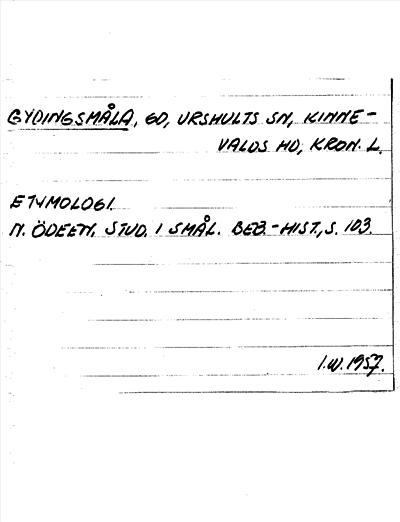 GYDINGSMÅLA, GD, URSHULTS SN, KINNE-
VALDS HD, KRON. L.
ETYMOLOGI.
N. ÖDEEN. STUD. I SMÅL. BEB.-HIST., S. 103.
I.W. 1957.